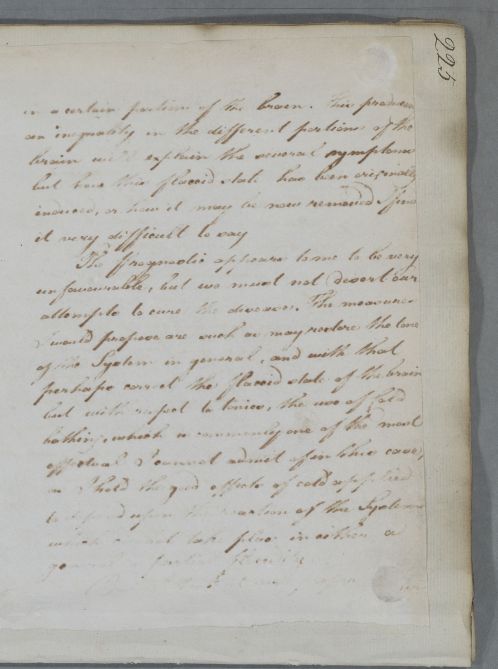 225
in a certain portion of the brain. This produces
an inequality in the different portions of the
brain will explain the several symptoms
but how this flaccid state has been originally
induced, or how it may be now removed I find
it very difficult to say
The Prognostic appears to me to be very
unfavourable, but we must not desert our
attempts to cure the disease. The measures
I would propose are such as may restore the tone
of the System in general, and with that
perhaps correct the flaccid state of the brain
but with respect to tonics, the use of cold
bathing, which is commonly one of the most
effectual I cannot admit of in this case,
as I hold the good effects of cold applied
to depend upon the reaction of the System
which cannot take place in either a
general or partial